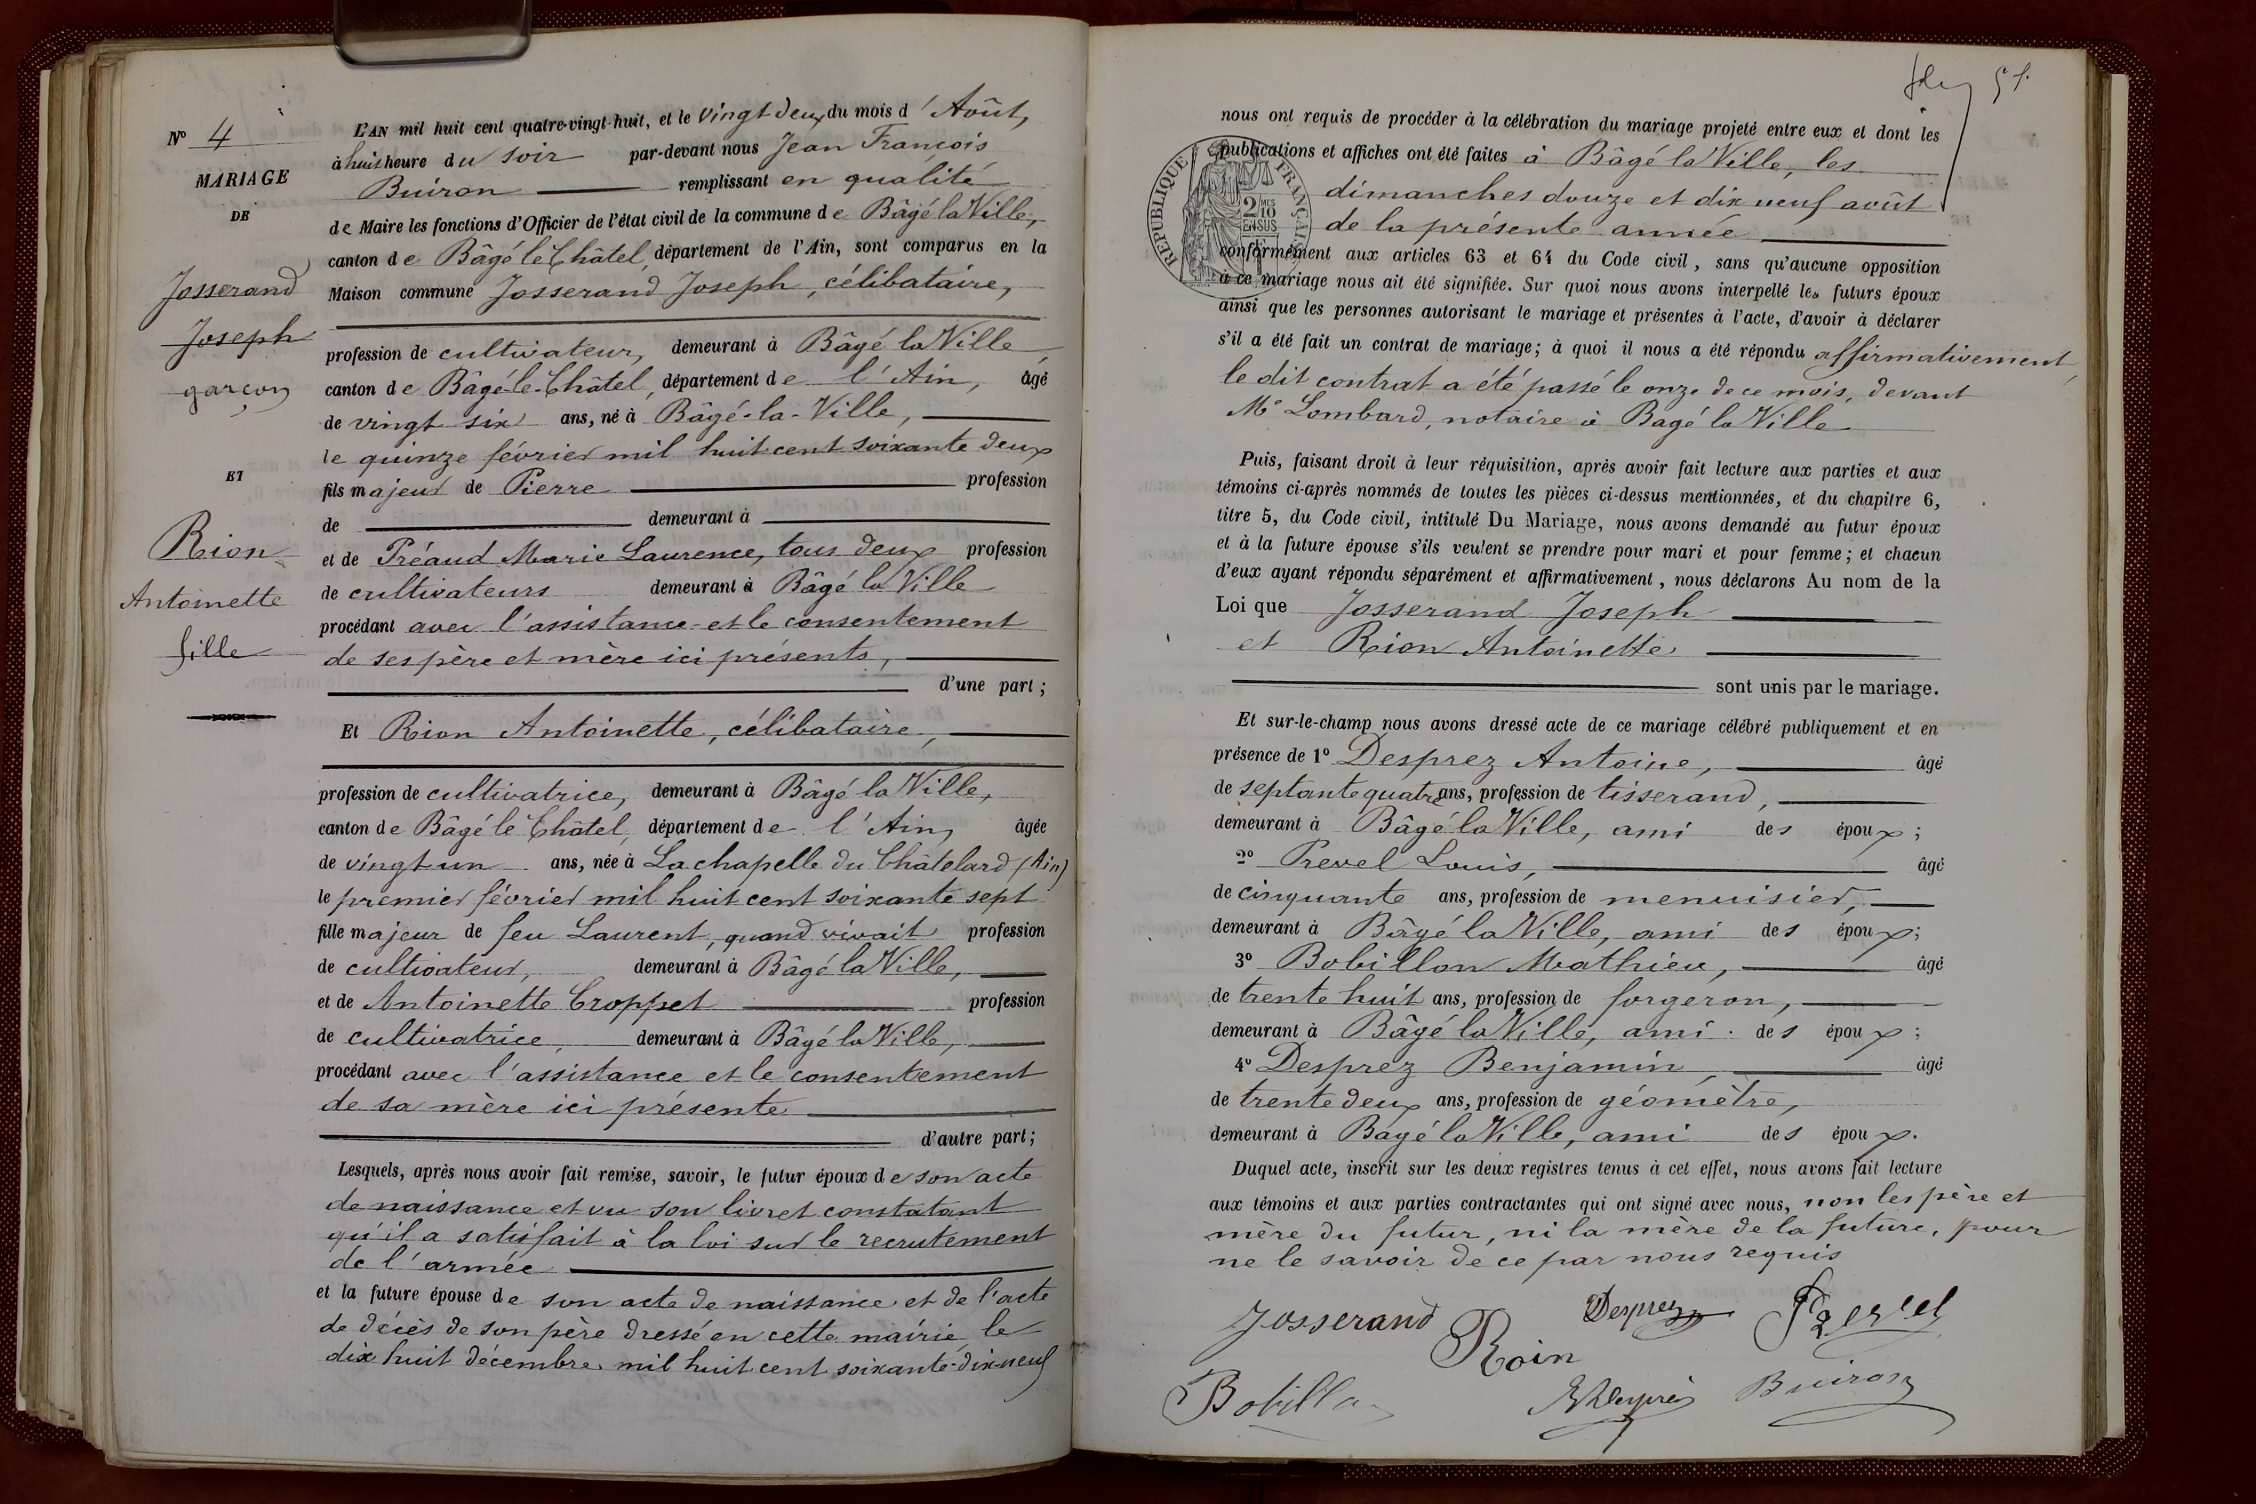 Nº 4
MARIAGE
DE
Josserand
Joseph
garçon
ET
Rion
Antoinette
fille
L'AN mil huit cent quatre-vingt-huit, et le vingt deux du mois d'Août,
à huit heure du soir par-devant nous Jean François
Buiron remplissant en qualité
de Maire les fonctions d'Officier de l'état civil de la commune de Bâgé la Ville,
canton de Bâgé le Châtel, département de l'Ain, sont comparus en la
Maison commune Josserand Joseph, célibataire,
profession de cultivateur, demeurant à Bâgé la Ville,
canton de Bâgé-le-Châtel, département de l'Ain, âgé
de vingt six ans, né à Bâgé-la-Ville,
le quinze février mil huit cent soixante deux
fils majeur de Pierre profession
de demeurant à
et de Préaud Marie Laurence, tous deux profession
de cultivateurs demeurant à Bâgé la Ville
procédant avec l'assistance et le consentement
de ses père et mère ici présents,
d'une part ;
Et Rion Antoinette, célibataire,
profession de cultivatrice, demeurant à Bâgé la Ville,
canton de Bâgé le Châtel, département de l'Ain, âgée
de vingt un ans, née à La chapelle du Châtelard (Ain)
le premier février mil huit cent soixante sept
fille majeur de feu Laurent, quand vivait profession
de cultivateur, demeurant à Bâgé la Ville,
et de Antoinette Croppet profession
de cultivatrice, demeurant à Bâgé la Ville,
procédant avec l'assistance et le consentement
de sa mère ici présente
d'autre part ;
Lesquels, après nous avoir fait remise, savoir, le futur époux de son acte
de naissance et vu son livret constatant
qu'il a satisfait à la loi sur le recrutement
de l'armée
et la future épouse de son acte de naissance et de l'acte
de décès de son père dressé en cette mairie le
dix huit décembre mil huit cent soixante-dix-neuf
51.
nous ont requis de procéder à la célébration du mariage projeté entre eux et dont les
publications et affiches ont été faites à Bâgé la Ville, les
dimanches douze et dix neuf août
de la présente année
RÉPUBLIQUE FRANÇAISE
2/10
EN SUS
conformément aux articles 63 et 64 du Code civil, sans qu'aucune opposition
à ce mariage nous ait été signifiée. Sur quoi nous avons interpellé les futurs époux
ainsi que les personnes autorisant le mariage et présentes à l'acte, d'avoir à déclarer
s'il a été fait un contrat de mariage ; à quoi il nous a été répondu affirmativement,
le dit contrat a été passé le onze de ce mois, devant
Me Lombard, notaire à Bagé la Ville
Puis, faisant droit à leur réquisition, après avoir fait lecture aux parties et aux
témoins ci-après nommés de toutes les pièces ci-dessus mentionnées, et du chapitre 6,
titre 5, du Code civil, intitulé Du Mariage, nous avons demandé au futur époux
et à la future épouse s'ils veulent se prendre pour mari et pour femme ; et chacun
d'eux ayant répondu séparément et affirmativement, nous déclarons Au nom de la
Loi que Josserand Joseph
et Rion Antoinette
sont unis par le mariage.
Et sur-le-champ nous avons dressé acte de ce mariage célébré publiquement et en
présence de 1º Desprez Antoine, âgé
de septante quatre ans, profession de tisserand,
demeurant à Bâgé la Ville, ami des époux ;
2º Prevel Louis, âgé
de cinquante ans, profession de menuisier,
demeurant à Bâgé la Ville, ami des époux ;
3º Bobillon Mathieu, âgé
de trente huit ans, profession de forgeron,
demeurant à Bâgé la Ville, ami des époux ;
4º Desprez Benjamin, âgé
de trente deux ans, profession de géomètre,
demeurant à Bagé la Ville, ami des époux.
Duquel acte, inscrit sur les deux registres tenus à cet effet, nous avons fait lecture
aux témoins et aux parties contractantes qui ont signé avec nous, non les père et
mère du futur, ni la mère de la future, pour
ne le savoir de ce par nous requis
Josserand Roin Desprez Prevel
Bobillon BDesprés Buiron